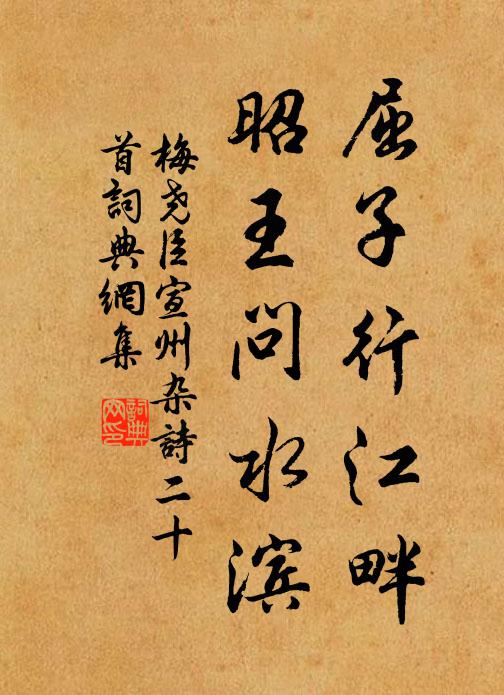 屈子行江畔
昭王问水滨
梅尧臣宣州杂詩二十
首詞典網集
詞典
网印